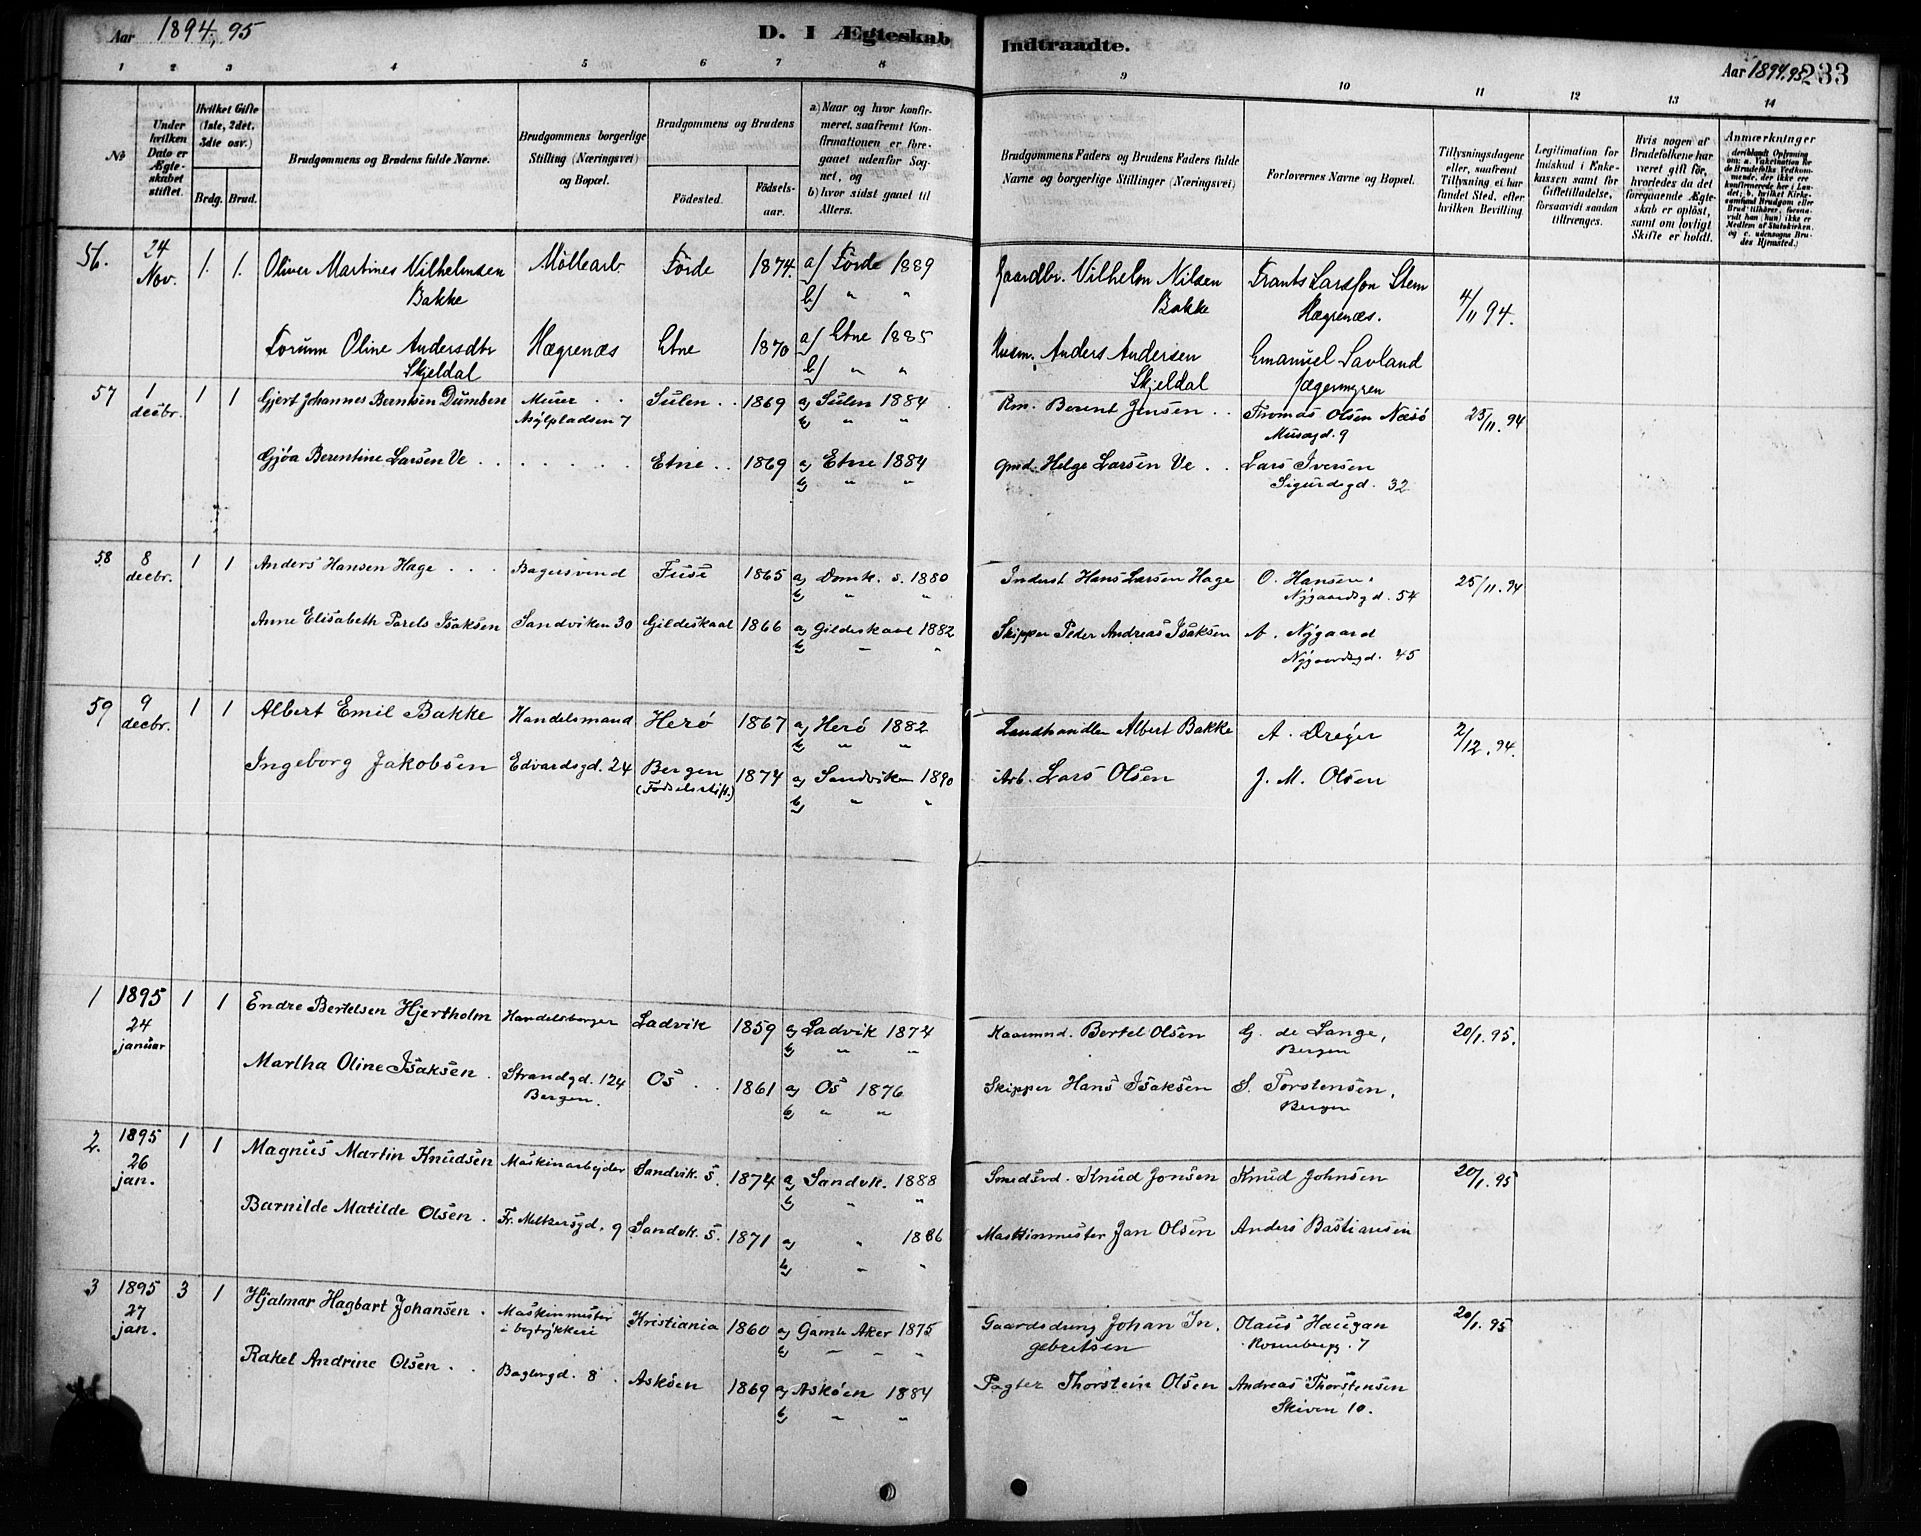 Aar 1894, 95
D. I Ægteskab Indtraadte.
Aar 1894.95 233
1 2 3 4 5 6 7 8 9 10 11 12 13 14
No
Under hvilken Dato er Ægteskabet stiftet.
Hvilket Gifte (1ste, 2det, 3dte osv.)
Brdg. Brud.
Brudgommens og Brudens fulde Navne.
Brudgommens borgerlige Stilling (Næringsvei) og Bopæl.
Brudgommens og Brudens
Fødested. Fødselsaar.
a) Naar og hvor konfirmeret, saafremt Konfirmationen er foregaaet udenfor Sognet, og
b) hvor sidst gaaet til Alters.
Brudgommens Faders og Brudens Faders fulde Navne og borgerlige Stillinger (Næringsvei)
Forlovernes Navne og Bopæl.
Tillysningsdagene eller, saafremt Tillysning ei har fundet Sted, efter hvilken Bevilling.
Legitimation for Indskud i Enkekassen samt for Giftetilladelse, forsaavidt saadan tiltrænges.
Hvis nogen af Brudefolkene har været gift før, hvorledes da det foregaaende Ægteskab er opløst, samt om lovligt Skifte er holdt.
Anmærkninger
56. 24 Nov. 1. 1. Oliver Martines Vilhelmsen Bakke Möllearb Förde 1874. a/ Förde 1889 Gaardbr. Vilhelm Nilsen Bakke Frants Larsson Stem Hægrenæs. 4/11 94.
b/ " "
Torunn Oline Andersdtr Skjeldal Hægrenæs Etne 1870 a/ Etne 1885 Husm. Anders Andersen Skjeldal Emanuel Lavland Jægermyren
b/ " "
57 1 decbr. 1 1 Gjert Johannes Berntsen Dumben Murer Asylpladsen 7 Sulen 1869 a) Sulen 1884 Rm. Berent Jensen Thomas Olsen Næsö Musegd. 9 25/11. 94
b) " "
Gjøa Berentine Larsen Ve Etne 1869 a) Etne 1884 Gmd. Helge Larsen Ve Lars Iversen Sigurdsgd. 32
b) " "
58 8 decbr. 1 1 Anders Hansen Hage Bagersvend Fuse 1865 a) Domk. s. 1880 Inderst Hans Larsen Hage O. Hansen, Nygaardsgd. 54 25/11. 94
b) " "
Anne Elisabeth Parels Isaksen Sandviken 30 Gildeskaal 1866 a) Gildeskaal 1882 Skipper Peder Andreas Isaksen A. Nygaard Nygaardsgd. 45
b) " "
59 9 decbr. 1 1 Albert Emil Bakke Handelsmand Herø 1867 a) Herø 1882 Landhandler Albert Bakke A. Dreyer 2/12. 94.
b) " "
Ingeborg Jakobsen Edvardsgd. 24 Bergen (Fødselsstift.) 1874 a) Sandviken 1890 Arb. Lars Olsen J. M. Olsen
b) " "
1 1895 24 januar 1 1 Endre Bertelsen Hjertholm Handelsborger Ladvik 1859 a) Ladvik 1874 Kaarmnd. Bertel Olsen G. de Lange, Bergen 20/1. 95.
b) " "
Martha Oline Isaksen Strandgd. 124 Bergen. Os 1861 a) Os 1876 Skipper Hans Isaksen S. Torstensen, Bergen
b) " "
2. 1895 26 jan. 1 1 Magnus Martin Knudsen Maskinarbejder Sandvik. S. 1874 a) Sandvk. 1888 Smedsvd. Knud Jonsen Knud Johnsen 20/1. 95
b) " "
Barnilde Matilde Olsen Fr. Meltzersgd. 9 Sandvk. S. 1871 a) " 1886 Maskinmester Jan Olsen Anders Bastiansen
b) " "
3 1895 27 jan. 3 1 Hjalmar Hagbart Johansen Maskinmester i bogtrykkeri Kristiania 1860 a) Gamle Aker 1875 Gaardsdreng Johan Ingebritsen Olaus Haugan Rosenbergg. 7 20/1. 95
b) " " "
Rakel Andrine Olsen Baglergd. 8 Askøen 1869 a) Askøen 1884 Pagter Thorstein Olsen Andreas Thorstensen Skiven 10.
b) " "